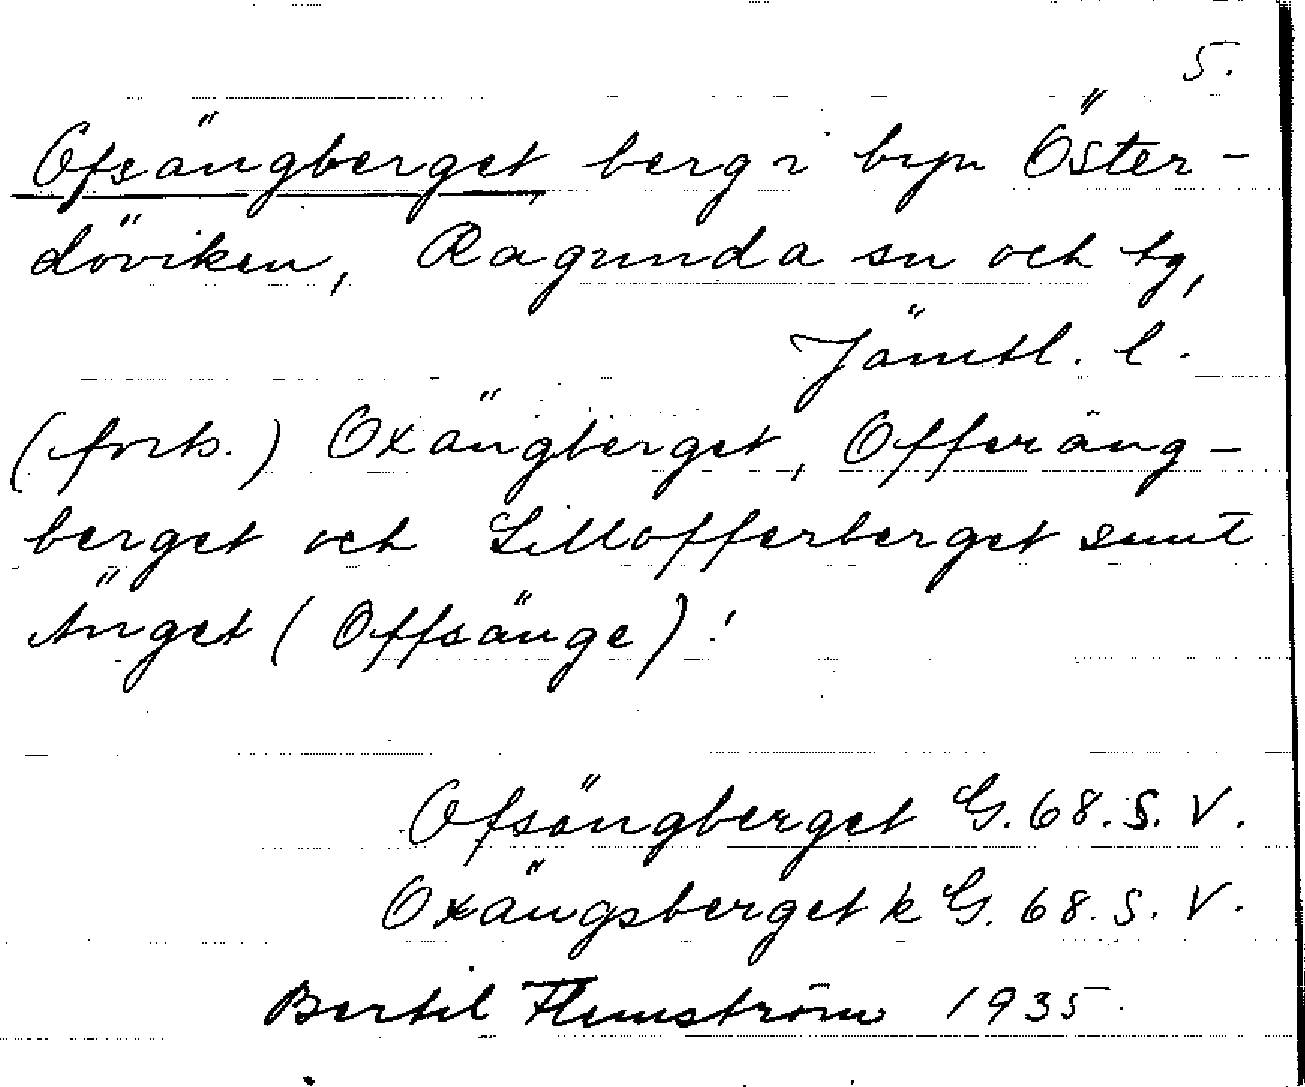 5.
Ofsängberget berg i byn Öster-
döviken, Ragunda sn och tg,
Jämtl. l.
(forts.) Oxängberget, Offeräng-
berget och Lillofferberget samt
Änget (Offsänge)!
Ofsängberget G. 68. S. V.
Oxängsberget k G. 68. S. V.
Bertil Flemström 1935.